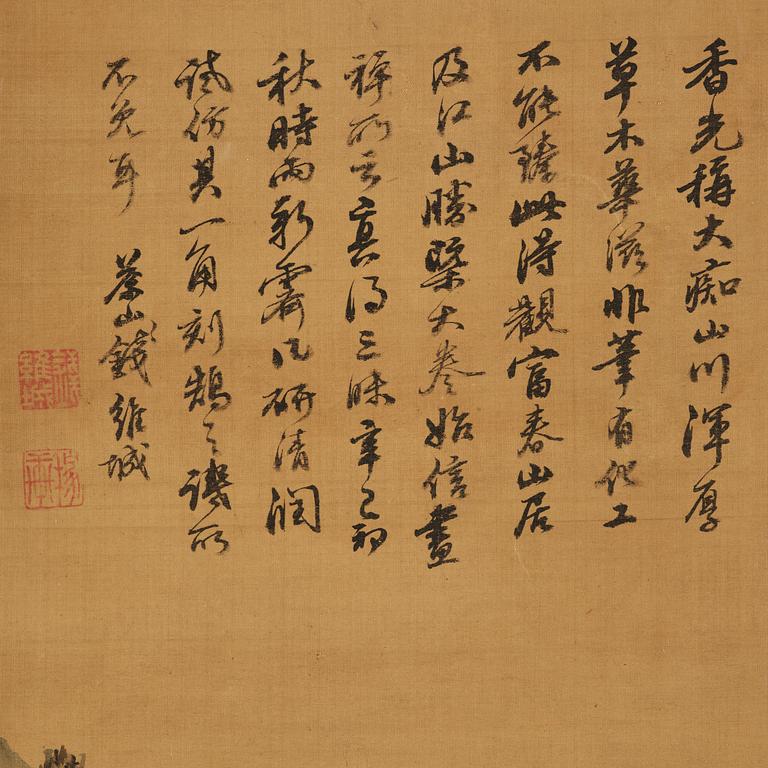 香光稱大痴山川渾厚
草木華滋非筆有化工
不能臻此得觀富春山居
及江山勝槩大卷始信畫
禪所云真得三昧辛巳初
秋時雨新霽几研清潤
試仿其一角刻鵠之譏所
不免耳 茶山錢維城